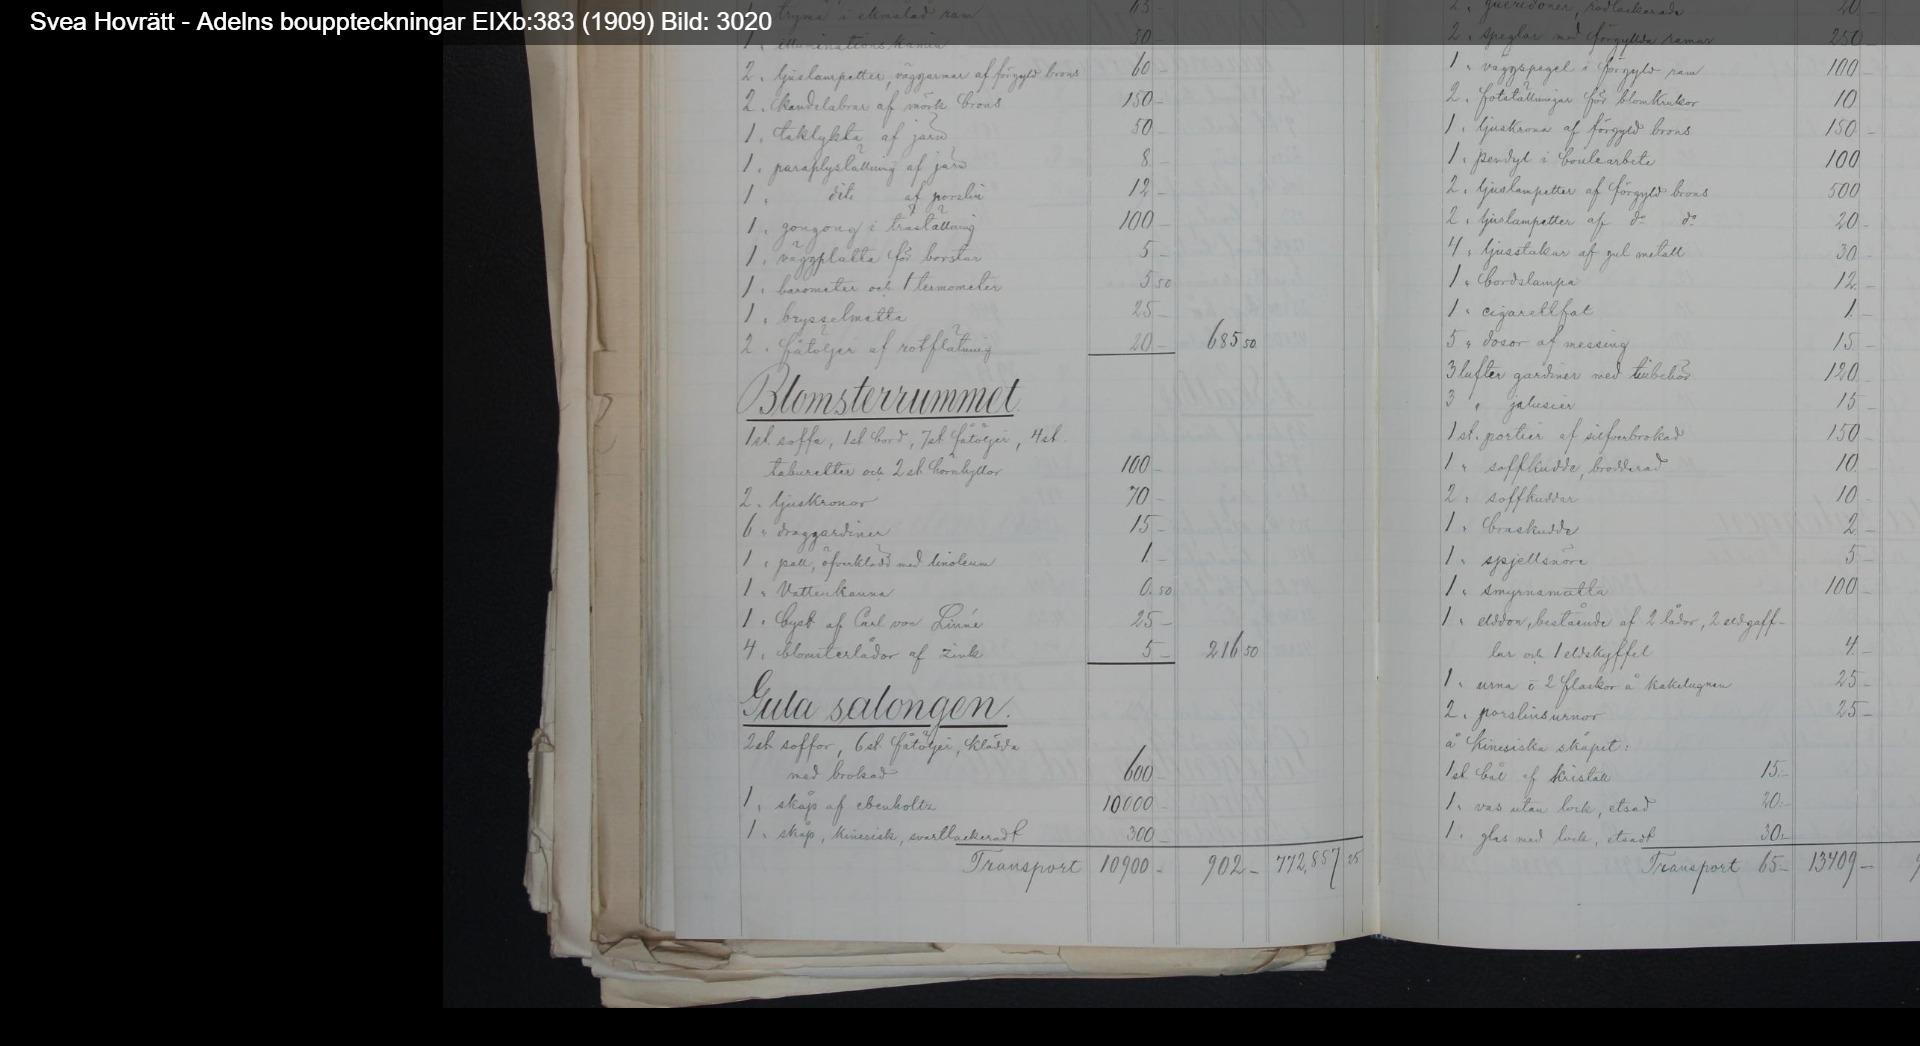 Svea Hovrätt - Adelns bouppteckningar EIXb:383 (1909) Bild: 3020
1 " tryma i ekmålad ram 65
1 " illuminationskamin 50 -
2 " ljuslampetter, väggarmar af förgyld brons 60 -
2 " kandelabrar af mörk brons 150 -
1 " taklykta af järn 50 -
1 " paraplyställning af järn 8 -
1 " dito af porslin 12 -
1 " gongong i träställning 100 -
1 " väggplatta för borstar 5 -
1 " barometer och 1 termometer 5 50
1 " brysselmatta 25 -
2 " fåtöljer af rotflätning 20 - 685 50
Blomsterrummet
1 st. soffa, 1 st bord, 7 st fåtöljer, 4 st.
taburetter och 2 st hörnhyllor 100 -
2 " ljuskronor 70 -
6 " draggardiner 15 -
1 " pall, öfverklädd med linoleum 1 -
1 " Vattenkanna 0.50
1 " byst af Carl von Linné 25 -
4 " blomsterlådor af zink 5 - 216 50
Gula salongen.
2 st soffor, 6 st fåtöljer, klädda
med brokad 600 -
1 " skåp af ebenholtz 10000 -
1 " skåp, kinesisk, svartlackeradt 300 -
Transport 10900 - 902 - 772,857 25
2 " gueridoner, rödlackerade 20 -
2 " speglar med förgyllda ramar 250 -
1 " väggspegel i förgyld ram 100 -
2 " fotställningar för blomkrukor 10
1 " ljuskrona af förgyld brons 150 -
1 " pendyl i boulearbete 100
2 " ljuslampetter af förgyld brons 500
2 " ljuslampetter af do do 20 -
4 " ljusstakar af gul metall 30 -
1 " bordslampa 12 -
1 " cigarettfat 1 -
5 " dosor af messing 15 -
3 lufter gardiner med tillbehör 120
3 " jalusier 15 -
1 st. portier af silfverbrokad 150 -
1 " soffkudde, broderad 10
2 " soffkuddar 10 -
1 " braskudde 2 -
1 " spjellsnöre 5 -
1 " smyrnamatta 100 -
1 " elddon, bestående af 2 lådor, 2 eldgaff-
lar och 1 eldskyffel 4 -
1 " urna o 2 flaskor å kakelugnen 25 -
2 " porslinsurnor 25 -
å kinesiska skåpet:
1 st bål af kristall 15 -
1 " vas utan lock, etsad 20 -
1 " glas med lock, etsadt 30 -
Transport 65 - 13409 -